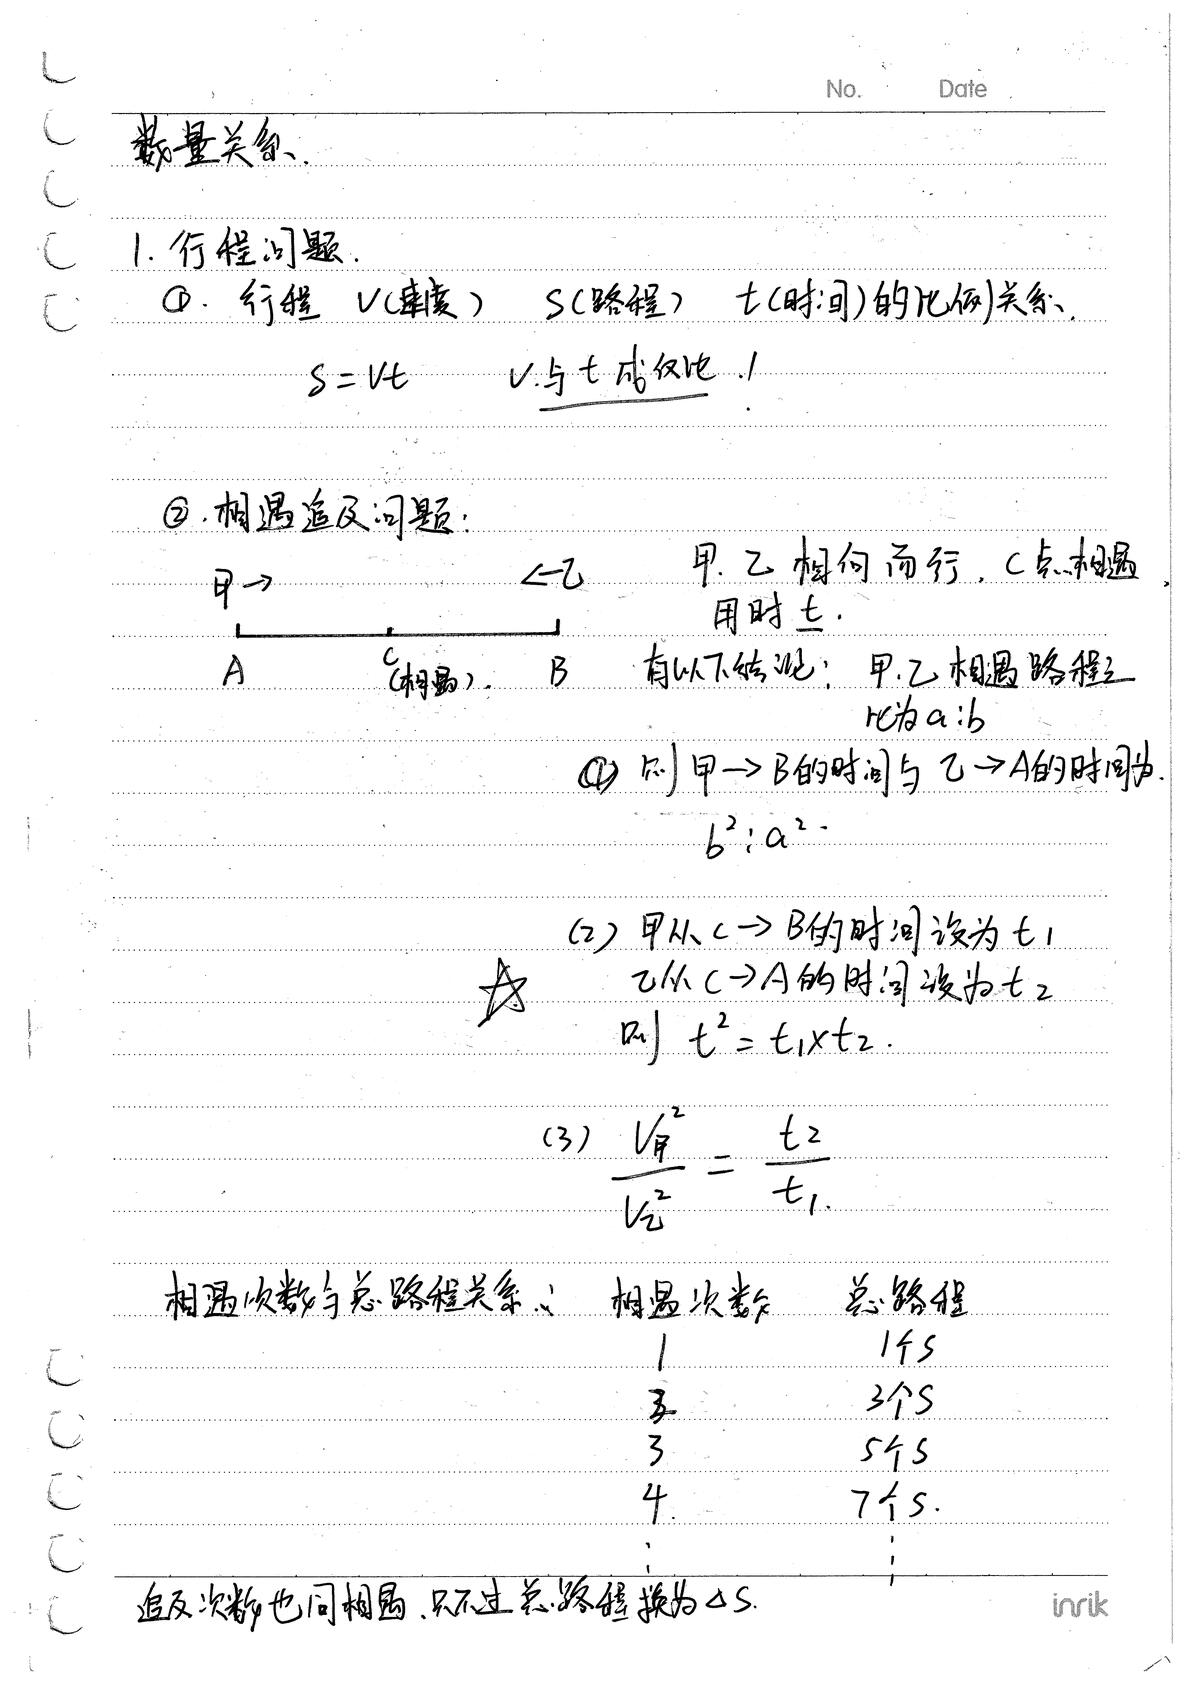 No. Date
数量关系.
1. 行程问题.
①. 行程 V(速度) S(路程) t(时间)的比例关系.
S=Vt V.与t成反比.!
②.相遇追及问题:
甲→ ←乙 甲.乙相向而行.C点相遇,
用时t.
A C B 有以下情况: 甲.乙相遇路程之
(相遇).
比为a:b
(1) 则甲→B的时间与乙→A的时间为.
b²:a².
(2) 甲从C→B的时间设为t₁
☆ 乙从C→A的时间设为t₂
则 t²=t₁×t₂.
(3) V甲²/V乙² = t₂/t₁.
相遇次数与总路程关系: 相遇次数 总路程
1 1个S
2 3个S
3 5个S
4. 7个S.
追及次数也同相遇.只不过总路程换为△S.
inrik